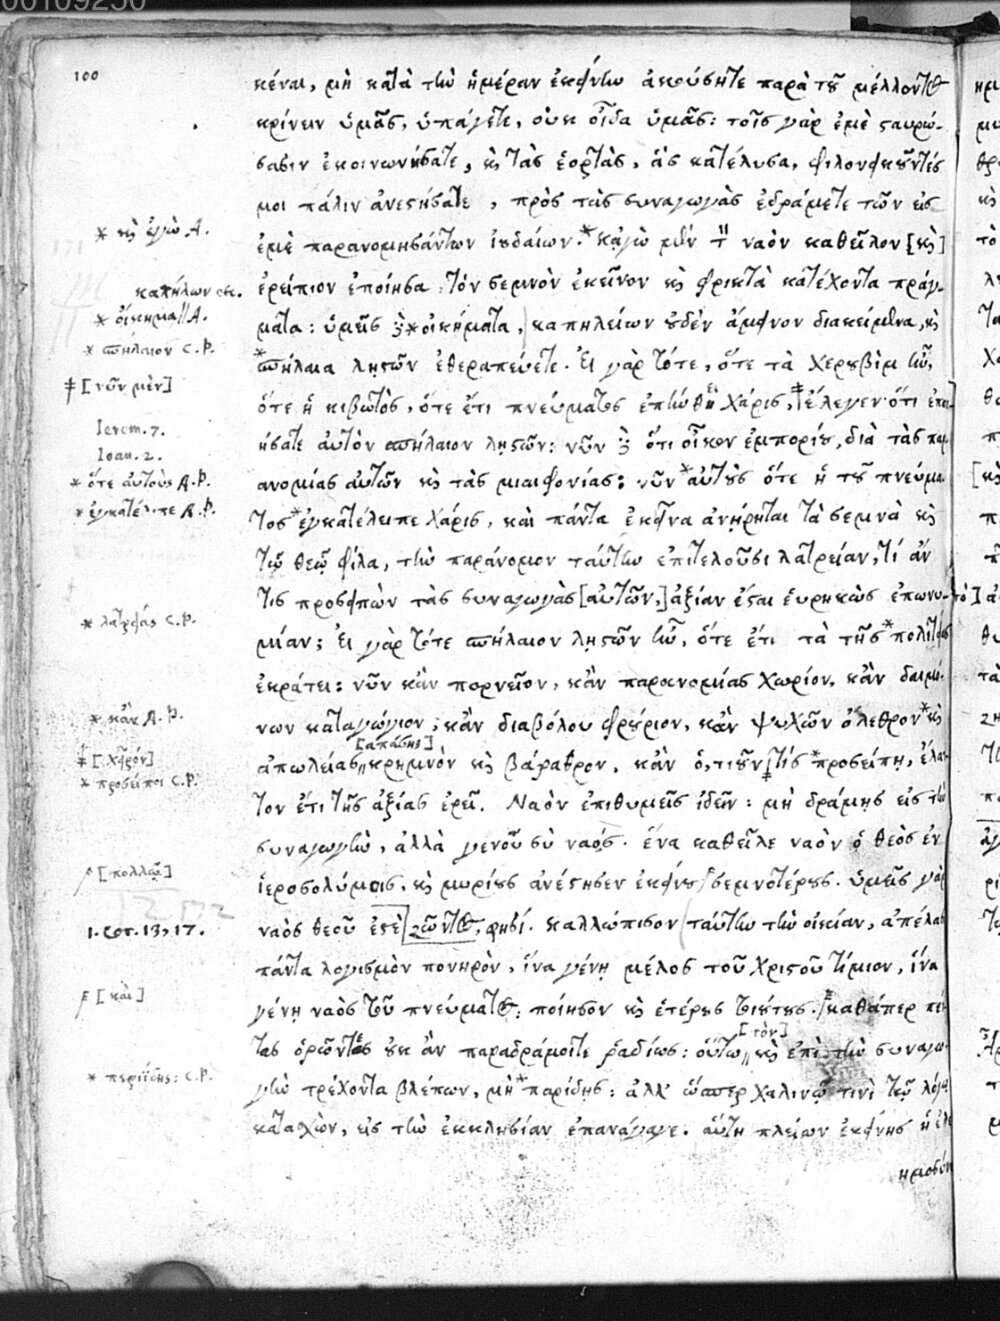 00109250
100
κέναι, μὴ κατὰ τὴν ἡμέραν ἐκείνην ἀκούσητε παρὰ τοῦ μέλλοντος
κρίνειν ὑμᾶς, ὑπάγετε, οὐκ οἶδα ὑμᾶς: τοῖς γὰρ ἐμὲ σταυρώ-
σασιν ἐκοινωνήσατε, κὶ τὰς ἑορτὰς, ἃς κατέλυσα, φιλονεικοῦντές
μοι πάλιν ἀνεστήσατε, πρὸς τὰς συναγωγὰς ἐδράμετε τῶν εἰς
* κὶ ἐγὼ A.
ἐμὲ παρανομησάντων ἰουδαίων. * κἀγὼ μὲν τὸν ναὸν καθεῖλον [κὶ]
καπήλων οικ.
ἐρείπιον ἐποίησα τὸν σεμνὸν ἐκεῖνον κὶ φρικτὰ κατέχοντα πράγ-
* οἴκημα A.
ματα: ὑμεῖς δὲ * οἰκήματα, καπηλείων οὐδὲν ἄμεινον διακείμενα, κὶ
* σπήλαιον C.P.
* σπήλαια λῃστῶν ἐθεραπεύετε. Εἰ γὰρ τότε, ὅτε τὰ χερουβὶμ ἦν,
‡ [νῦν μὲν]
ὅτε ἡ κιβωτὸς, ὅτε ἔτι πνεύματος ἐπήνθει χάρις, ‡ ἔλεγεν ὅτι ἐποι-
Ierem. 7.
ήσατε αὐτὸν σπήλαιον λῃστῶν: νῦν δὲ ὅτι οἶκον ἐμπορίου, διὰ τὰς παρ
Ioan. 2.
* ὅτε αὐτοὺς A.P.
ανομίας αὐτῶν κὶ τὰς μιαιφονίας: νῦν * αὐτοὺς ὅτε ἡ τοῦ πνεύμα
* ἐγκατέλιπε A.P.
τος * ἐγκατέλειπε χάρις, καὶ πάντα ἐκεῖνα ἀνῄρηται τὰ σεμνὰ κὶ
τῷ θεῷ φίλα, τὴν παράνομον ταύτην ἐπιτελοῦσι λατρείαν, τί ἄν
τις προσειπὼν τὰς συναγωγὰς [αὐτῶν,] ἀξίαν ἔσται εὑρηκὼς ἐπωνυ-
* λατρείας C.P.
μίαν; Εἰ γὰρ τότε σπήλαιον λῃστῶν ἦν, ὅτε ἔτι τὰ τῆς * πολιτείας
ἐκράτει: νῦν κἂν πορνεῖον, κἂν παρανομίας χωρίον, κἂν δαιμό-
* κἂν A.P.
νων καταγώγιον, κἂν διαβόλου φρούριον, κἂν ψυχῶν ὄλεθρον * κὶ
‡ [χεῖρόν]
[ἁπάσης]
ἀπωλείας κρημνὸν κὶ βάραθρον, κἂν ὅ,τι οὖν ‡ τὶς * προσείπῃ, ἔλατ
* προσείποι C.P.
τον ἔτι τῆς ἀξίας ἐρεῖ. Ναὸν ἐπιθυμεῖς ἰδεῖν: μὴ δράμῃς εἰς τὴν
συναγωγὴν, ἀλλὰ γενοῦ σὺ ναός. ἕνα καθεῖλε ναὸν ὁ θεὸς ἐν
[πολλῷ]
ἱεροσολύμοις, κὶ μυρίους ἀνέστησεν ἐκείνου σεμνοτέρους. ὑμεῖς γὰρ
1. Cor. 13, 17.
ναὸς θεοῦ ἐστὲ ζῶντος, φησί. καλλώπισον ταύτην τὴν οἰκίαν, ἀπέλασ
πάντα λογισμὸν πονηρὸν, ἵνα γένῃ μέλος τοῦ Χριστοῦ τίμιον, ἵνα
[καὶ]
γένῃ ναὸς τοῦ πνεύματος: ποίησον κὶ ἑτέρους τοιούτους. καθάπερ πέ
[τὸν]
τας ὁρῶντες οὐκ ἂν παραδράμοιτε ῥαδίως: οὕτω κὶ ἐπὶ τὴν συναγω
* περιίδῃς: C.P.
γὴν τρέχοντα βλέπων, μὴ * παρίδῃς: ἀλλ' ὥσπερ χαλινῷ τινὶ τῷ λόγῳ
κατασχὼν, εἰς τὴν ἐκκλησίαν ἐπανάγαγε. αὕτη πλείων ἐκείνης ἡ ἐλε
ημοσύν